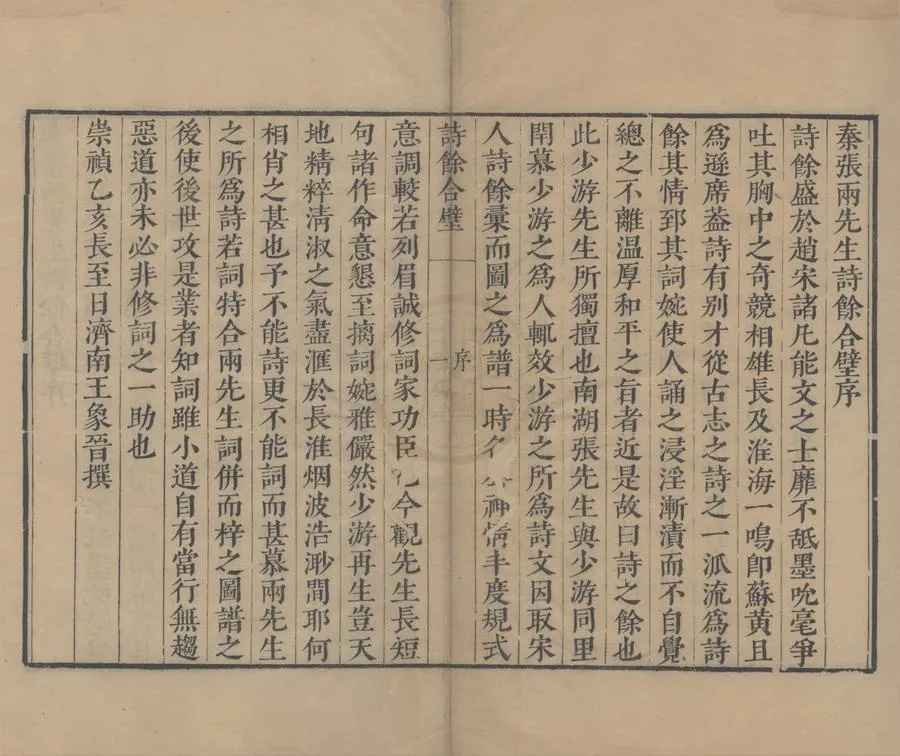 秦張兩先生詩餘合璧序
詩餘盛於趙宋諸凡能文之士靡不舐墨吮毫爭
吐其胸中之奇競相雄長及淮海一鳴卽蘇黃且
爲遜席葢詩有别才從古志之詩之一派流爲詩
餘其情郅其詞婉使人誦之浸淫漸漬而不自覺
總之不離温厚和平之旨者近是故曰詩之餘也
此少游先生所獨擅也南湖張先生與少游同里
閈慕少游之爲人輒效少游之所爲詩文因取宋
人詩餘彚而圖之爲譜一時神情丰度規式
詩餘合璧
序
一
意調較若列眉誠修詞家功臣今觀先生長短
句諸作命意懇至摛詞婉雅儼然少游再生豈天
地精粹淸淑之氣盡滙於長淮烟波浩渺間耶何
相肖之甚也予不能詩更不能詞而甚慕兩先生
之所爲詩若詞特合兩先生詞併而梓之圖譜之
後使後世攻是業者知詞雖小道自有當行無趨
惡道亦未必非修詞之一助也
崇禎乙亥長至日濟南王象晉撰